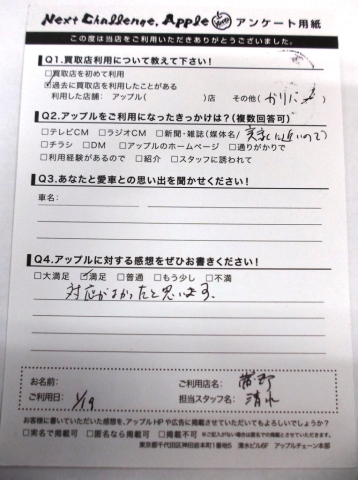 Next Challenge, Apple アンケート用紙
この度は当店をご利用いただきありがとうございました。
Q1.買取店利用について教えて下さい!
□買取店を初めて利用
☑過去に買取店を利用したことがある
利用した店舗： アップル( )店 その他(ガリバー)
Q2.アップルをご利用になったきっかけは?(複数回答可)
□テレビCM □ラジオCM □新聞・雑誌(媒体名/ に近いので)
□チラシ □DM □アップルのホームページ □通りがかりで
□利用経験があるので □紹介 □スタッフに誘われて
Q3.あなたと愛車との思い出を聞かせください!
車名：
Q4.アップルに対する感想をぜひお書きください!
□大満足 ☑満足 □普通 □もう少し □不満
対応がよかったと思います。
お名前： ご利用店名：
ご利用日： 1/19 担当スタッフ名： 清水
お客様に書いていただいた感想を、アップルHPや広告に掲載させていただいてもよろしいでしょうか?
□実名で掲載可 □匿名なら掲載可 □掲載不可 ※ご記入がない場合は匿名での掲載とさせていただきます。
東京都千代田区神田岩本町1番地5 清水ビル6F アップルチェーン本部